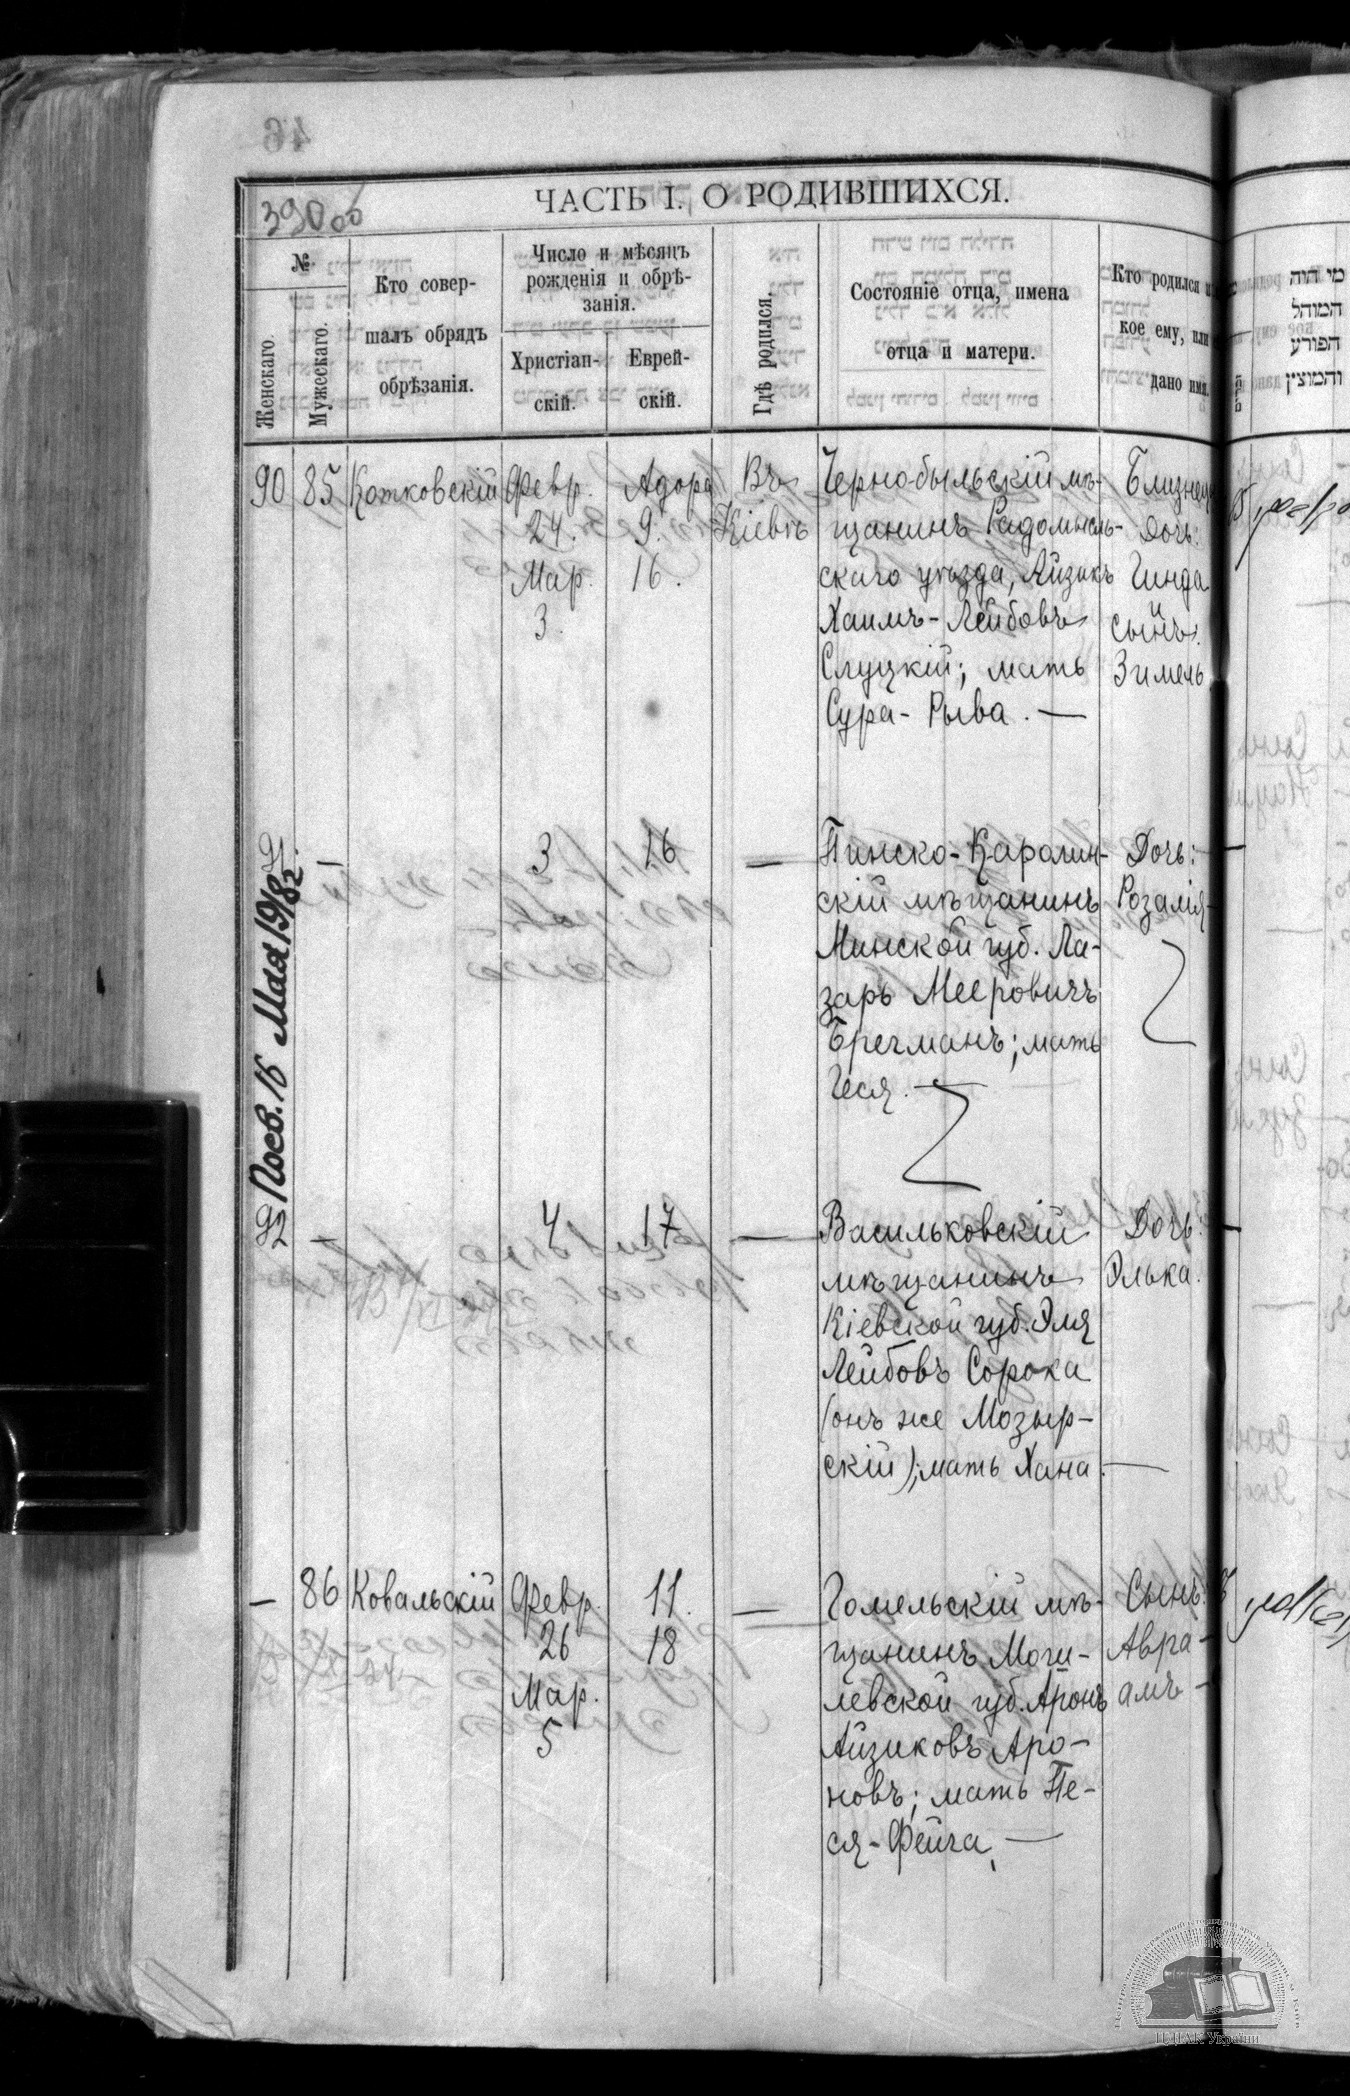 390 об
ЧАСТЬ I. О РОДИВШИХСЯ.
№
Женскаго.
Мужескаго.
Кто совер-
шалъ обрядъ
обрѣзанія.
Число и мѣсяцъ
рожденія и обрѣ-
занія.
Христіан-
скій.
Еврей-
скій.
Гдѣ родился.
Состояніе отца, имена
отца и матери.
Кто родился и
кое ему, или
дано имя.
מי היה
המוהל
הפורע
והמוצין
90 85 Котковскій Февр. 24. Мар. 3. Адора 9. 16. Въ Кіевѣ
Чернобыльскій мѣ-
щанинъ Радомысль-
скаго уѣзда, Айзикъ
Хаимъ-Лейбовъ
Слуцкій; мать
Сура-Рыва. —
Близнецы
Дочь:
Гинда
и
сынъ:
Зимель
91. — 3 16 —
Пинско-Каролин-
скій мѣщанинъ
Минской губ. Ла-
зарь Мееровичъ
Брегманъ; мать
Геся. —
Дочь: —
Розалія-
Посв. 16 Мая 19/82
92 — 4 17 —
Васильковскій
мѣщанинъ
Кіевской губ. Эля
Лейбовъ Сорока
(онъ же Мозыр-
скій); мать Хана. —
Дочь:
Элька.
— 86 Ковальскій Февр. 26 Мар. 5 11. 18 —
Гомельскій мѣ-
щанинъ Моги-
левской губ. Аронъ
Айзиковъ Аро-
новъ; мать Пе-
ся-Фейга, —
Сынъ:
Авра-
амъ -
ЦДІАК України